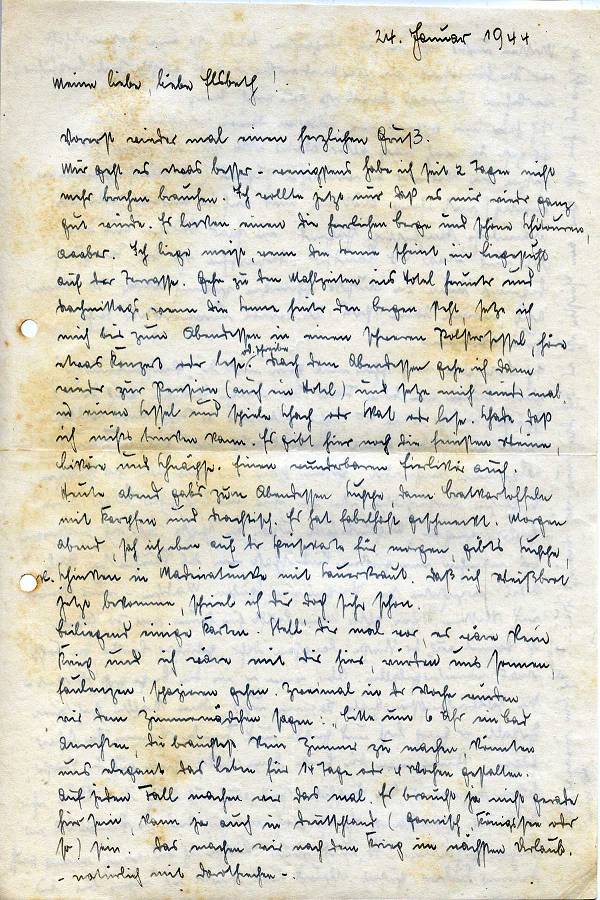 24. Januar 1944
Meine liebe, liebe Elsbeth!
Vorerst wieder mal einen herzlichen Gruß.
Mir geht es etwas besser - wenigstens habe ich seit 2 Tagen nicht
mehr brechen brauchen. Ich wollte jetzt nur, daß es mir wieder ganz
gut würde. Es locken einen die herrlichen Berge und schöne Schitouren,
aaaber. Ich liege meist, wenn die Sonne scheint, im Liegestuhl
auf der Terrasse. Gehe zu den Mahlzeiten ins Hotel und
Nachmittags, wenn die Sonne hinter den Bergen steht, setze ich
mich bis zum Abendessen in einen schweren Polstersessel, höre
etwas Konzert oder lese od. schreibe. Nach dem Abendessen gehe ich dann
wieder zur Pension (auch im Hotel) und setze mich wieder mal
in einen Sessel und spiele Schach oder Skat oder lese. Schade, daß
ich nichts trinken kann. Es gibt hier noch die feinsten Weine,
Liköre und Schnäpse. Einen wunderbaren Eierlikör auch.
Heute abend gabs zum Abendessen Suppe, dann Bratkartoffeln
mit Karpfen und Nachtisch. Es hat fabelhaft geschmeckt. Morgen
abend, sah ich eben auf der Speisekarte für morgen, gibts Suppe,
Schinken in Madeiratunke mit Sauerkraut. Daß ich Weißbrot
jetzt bekomme, schrieb ich dir doch schon.
Beiliegend einige Karten. Stell' dir mal vor, es wäre kein
Krieg und ich wäre mit dir hier, würden uns sonnen,
faulenzen, spazieren gehen. Zweimal in der Woche würden
wir dem Zimmermädchen sagen: "Bitte um 6 Uhr ein Bad
anrichten, du brauchst kein Zimmer zu machen könnten
uns elegant das Leben für 14 Tage oder 4 Wochen gestalten.
Auf jeden Fall machen wir das mal. Es braucht ja nicht gerade
hier sein, kann ja auch in Deutschland (Garmisch, Königssee oder
so) sein. Das machen wir nach dem Krieg im nächsten Urlaub.
- natürlich mit Dorothechen -.